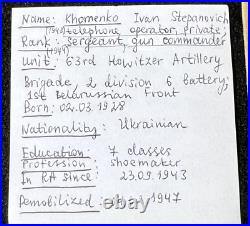 Name: Khomenko Ivan Stepanovich
(1943) telephone operator, private;
Rank: sergeant, gun commander
(1944)
Unit: 63rd Howitzer Artillery
Brigade, 2 division 6 battery;
1st Belarussian Front
Born: 02.03.1928
Nationality: Ukrainian
Education: 7 classes
Profession: shoemaker
In RA since: 23.09.1943
Demobilized: 1947